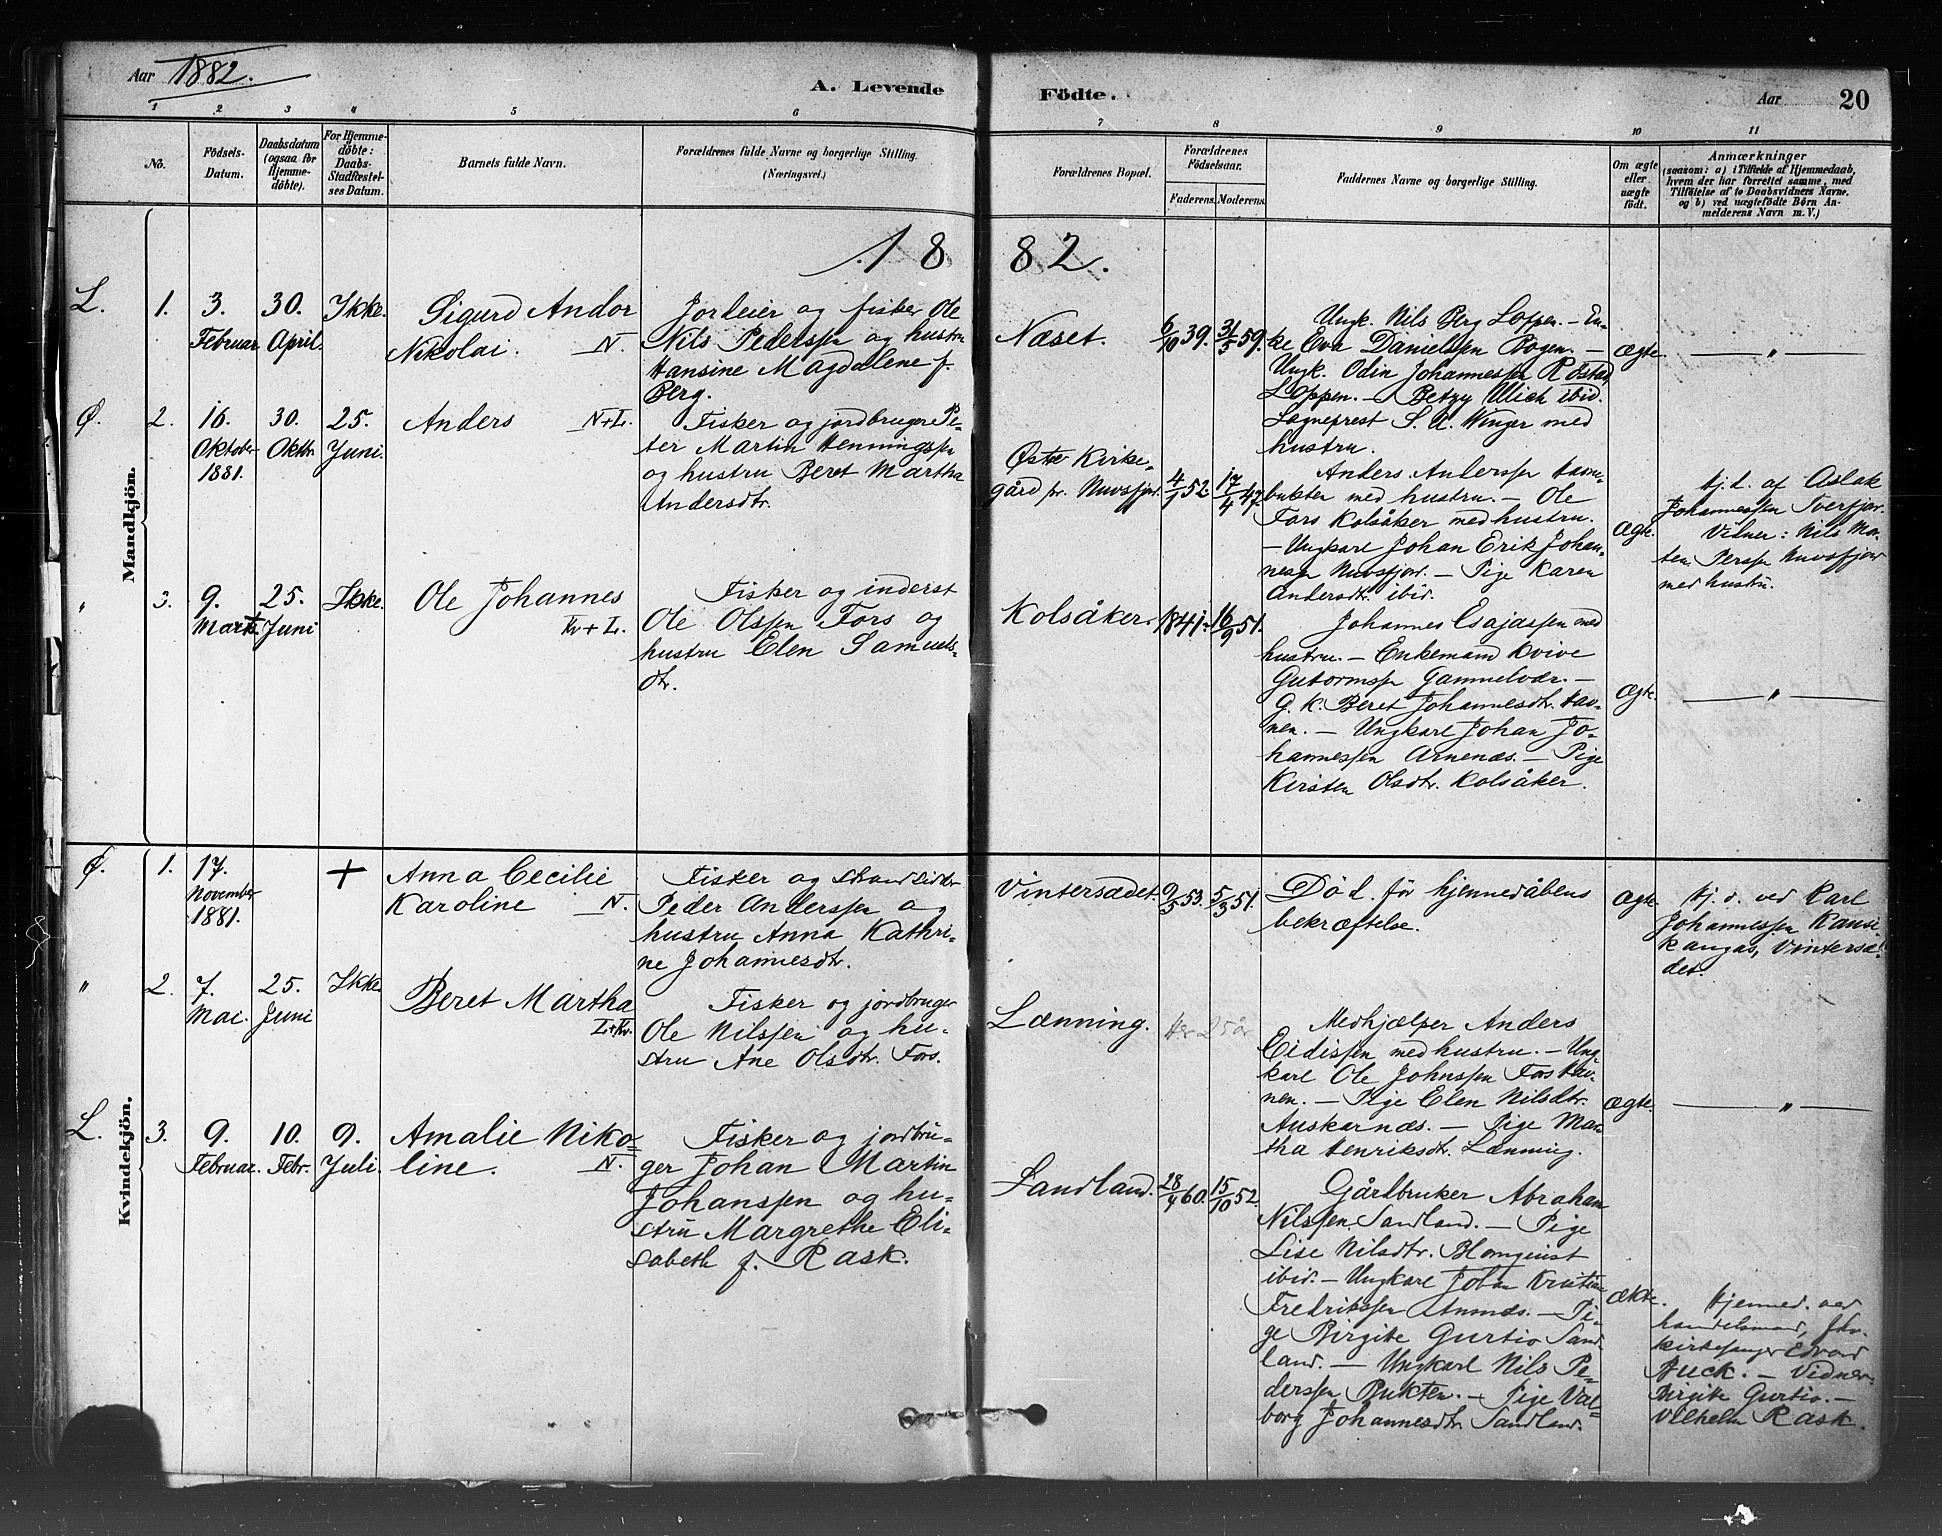 Aar 1882.
A. Levende
Födte.
Aar
20
1 2 3 4 5 6 7 8 9 10 11
No.
Födsels-
Datum.
Daabsdatum
(ogsaa for
Hjemme-
döbte).
For Hjemme-
döbte:
Daabs-
Stadfæstel-
ses Datum.
Barnets fulde Navn.
Forældrenes fulde Navne og borgerlige Stilling.
(Næringsvei.)
Forældrenes Bopæl.
Forældrenes
Födselsaar.
Faderens. Moderens.
Faddernes Navne og borgerlige Stilling.
Om ægte
eller
uægte
födt.
Anmærkninger
(saasom: a) i Tilfælde af Hjemmedaab,
hvem der har forrettet samme, med
Tilföielse af to Daabsvidners Navne.
og b) ved uægtefödte Börn An-
melderens Navn m. V.)
1882.
Mandkjön.
L.
1.
3.
Februar
30.
April.
Ikke.
Sigurd Andor
Nikolai. N.
Jordeier og fisker Ole
Nils Pederssen og hustru
Hansine Magdalene f.
Berg.
Næset.
6/10 39.
31/5 59.
Ungk. Nils Berg Loppen. – En-
ke Eva Danielssen Bogen. –
Ungk. Odin Johannessen Röstad
Loppen. – Betzy Ulich ibid.
Sogneprest S. A. Winger med
hustru.
Ægte.
— " —
Ø.
2.
16.
Oktober
1881.
30.
Oktbr.
25.
Juni.
Anders N+L.
Fisker og jordbruger Pe-
ter Martin Henningssen
og hustru Beret Martha
Andersdtr.
Østre Kirke-
gård pr. Nuvsfjor.
4/1 52.
17/4 47.
Anders Anderssen Havne-
bukten med hustru. – Ole
Fors Kolsåker med hustru.
– Ungkarl Johan Erik Johan-
nessen Nuvsfjor. – Pige Karen
Andersdtr. ibid.
Ægte.
Hj. d. af Aslak
Johannessen Tverfjor.
Vidner: Nils Mor-
ten Perssen Nuvsfjor
med hustru.
"
3.
9.
Marts.
25.
Juni
Ikke.
Ole Johannes
Kv+L.
Fisker og inderst
Ole Olssen Fors og
hustru Elen Samuels-
dtr.
Kolsåker.
1841.
16/9 51.
Johannes Esajassen med
hustru. – Enkemand Kvive
Gutormssen Gammelvær. –
G. K. Beret Johannesdtr. Hav-
nen. – Ungkarl Johan Jo-
hannessen Arnenæs. – Pige
Kirsten Olsdtr. Kolsåker.
Ægte.
— " —
Kvindekjön.
Ø.
1.
17.
November
1881.
+
Anna Cecilie
Karoline N.
Fisker og strandsidder
Peder Anderssen og
hustru Anna Kathri-
ne Johannesdtr.
Vintersædet.
9/5 53.
5/3 51.
Död för hjemmedåbens
bekræftelse.
Ægte.
Hj. d. ved Karl
Johannessen Kausi-
kangas, Vintersæ-
det.
"
2.
7.
Mai.
25.
Juni
Ikke.
Beret Martha
L+Kv.
Fisker og jordbruger
Ole Nilssen og hu-
stru Ane Olsdtr. Fors.
Lænning.
25 år
Medhjælper Anders
Eidissen med hustru. – Ung-
karl Ole Johnssen Fors Hav-
nen. – Pige Elen Nilsdtr.
Auskarnæs. – Pige Mar-
tha Henriksdtr. Lænning.
Ægte.
— " —
L.
3.
9.
Februar.
10.
Febr.
9.
Juli.
Amalie Niko-
line. N.
Fisker og jordbru-
ger Johan Martin
Johanssen og hu-
stru Margrethe Eli-
sabeth f. Rask.
Sandland.
28/4 60.
15/10 52.
Gårdbruker Abraham
Nilssen Sandland. – Pige
Lise Nilsdtr. Blomqvist
ibid. – Ungkarl Johan Kristian
Fredrikssen – Pi-
ge Birgite Gurtio Sand-
land. – Ungkarl Nils Pe-
derssen Bukten. – Pige Val-
borg Johannesdtr Sandland.
Ækte.
Hjemmed. ved
handelsmand,
kirkesanger Edvard
Buck. – Vidner.
Birgite Gurtio. –
Vilhelm Rask.